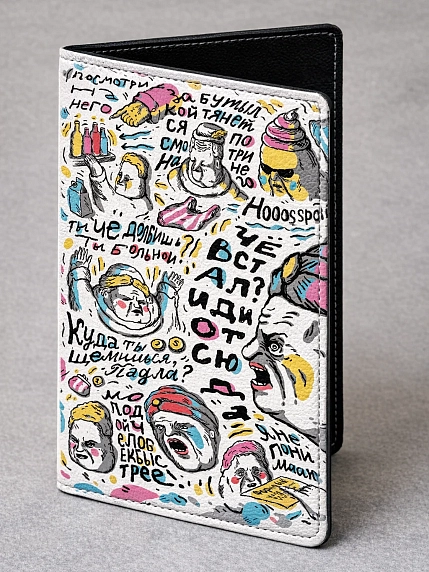 Посмотри
на
него
за бутыл
кой тянет
ся
смо
на
по
три
не
го
Hooosspo
ты че долбишь?!
ты больной?!
чё
вст
ал?
иди
от
сю
да
Куда ты
щемишься,
падла?
мо
лод
ой ч
елов
ек быс
трее
я не
пони
маю